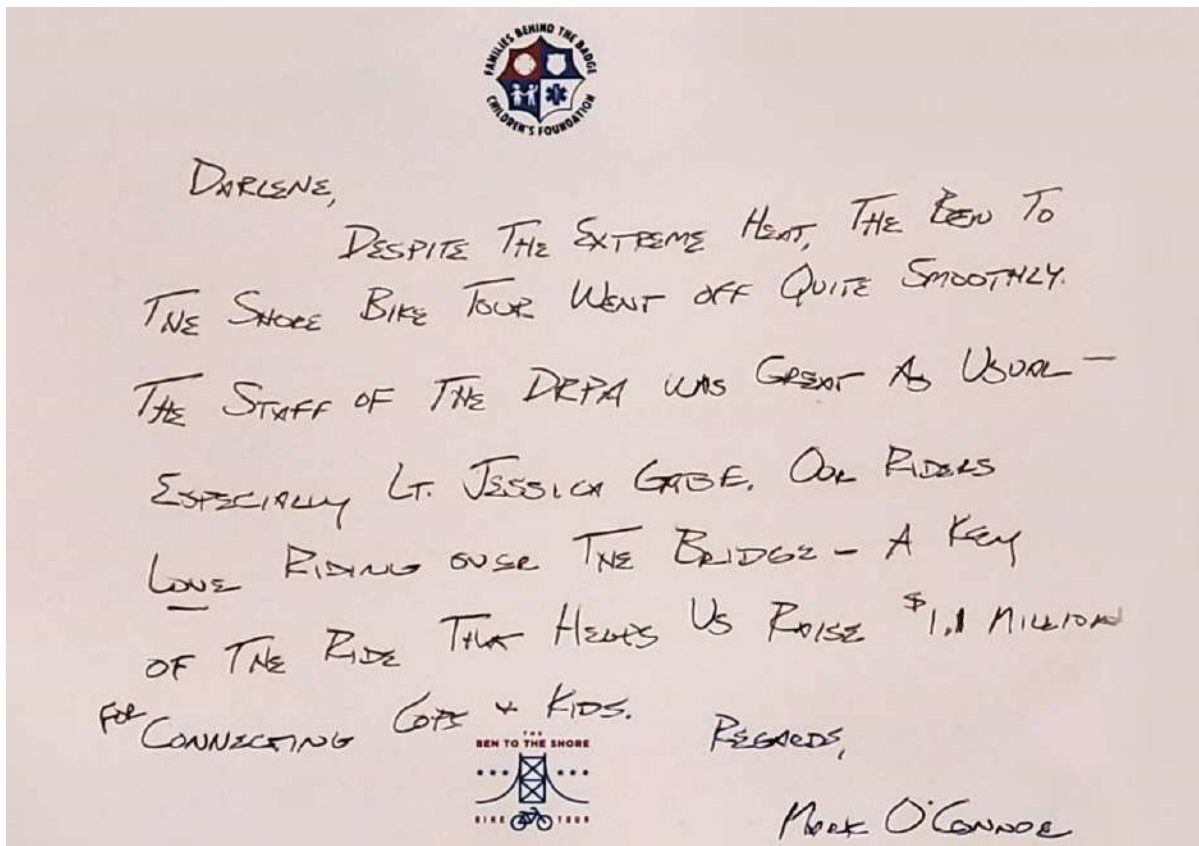 FAMILIES BEHIND THE BADGE
CHILDREN'S FOUNDATION
DARLENE,
DESPITE THE EXTREME HEAT, THE BEN TO
THE SHORE BIKE TOUR WENT OFF QUITE SMOOTHLY.
THE STAFF OF THE DRPA WAS GREAT AS USUAL –
ESPECIALLY LT. JESSICA GABE. OUR RIDERS
LOVE RIDING OVER THE BRIDGE – A KEY
OF THE RIDE THAT HELPS US RAISE $1.1 MILLION
FOR CONNECTING COPS & KIDS.
REGARDS,
MARK O'CONNOR
THE
BEN TO THE SHORE
BIKE TOUR